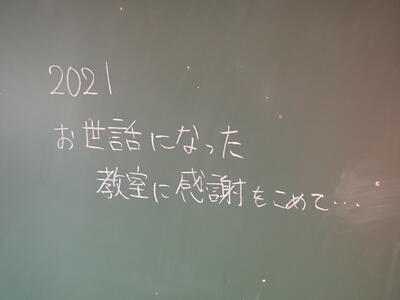 2021
お世話になった
教室に感謝をこめて...